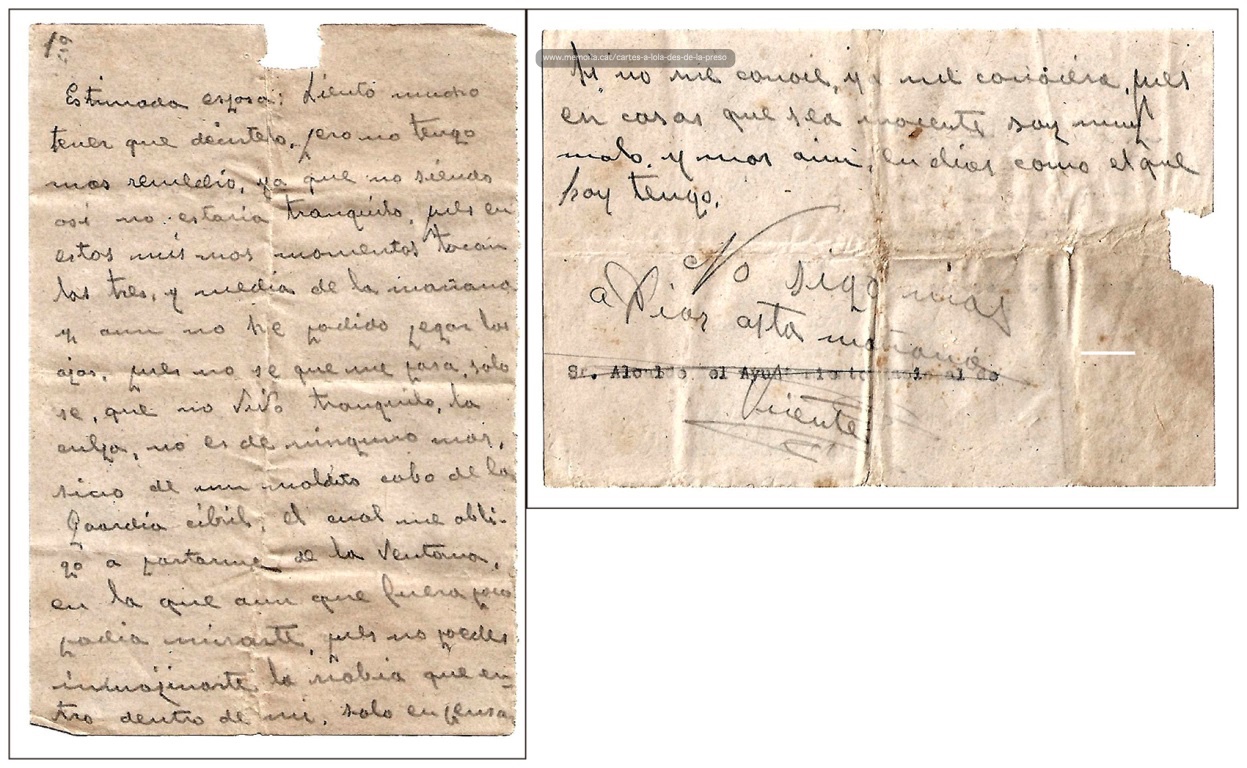 Estimada esposa: Siento mucho
tener que decirtelo, pero no tengo
mas remedio, ya que no siendo
asi no estaria tranquilo, pues en
estos mismos momentos tocan
las tres, y media de la mañana
y aun no he podido pegar los
ojos, pues no se que me pasa, solo
se, que no vivo tranquilo, la
culpa, no es de ninguno mas,
sicio de un maldito cabo de la
Guardia cibil, el cual me obli-
gó a partarme de la Ventana,
en la que aun que fuera poco
podia mirarte, pues no puedes
inmajinarte la rabia que en-
tro dentro de mi, solo en pensa
www.memoria.cat/cartes-a-lola-des-de-la-preso
Si no me conoce, ya me conocera, pues
en casas que sea inocente soy muy
malo, y mas aun, en dias como el que
hoy tengo.
No sigo mas
a Dios asta mañana
Sr. Alcalde el Ayu de
Vicente